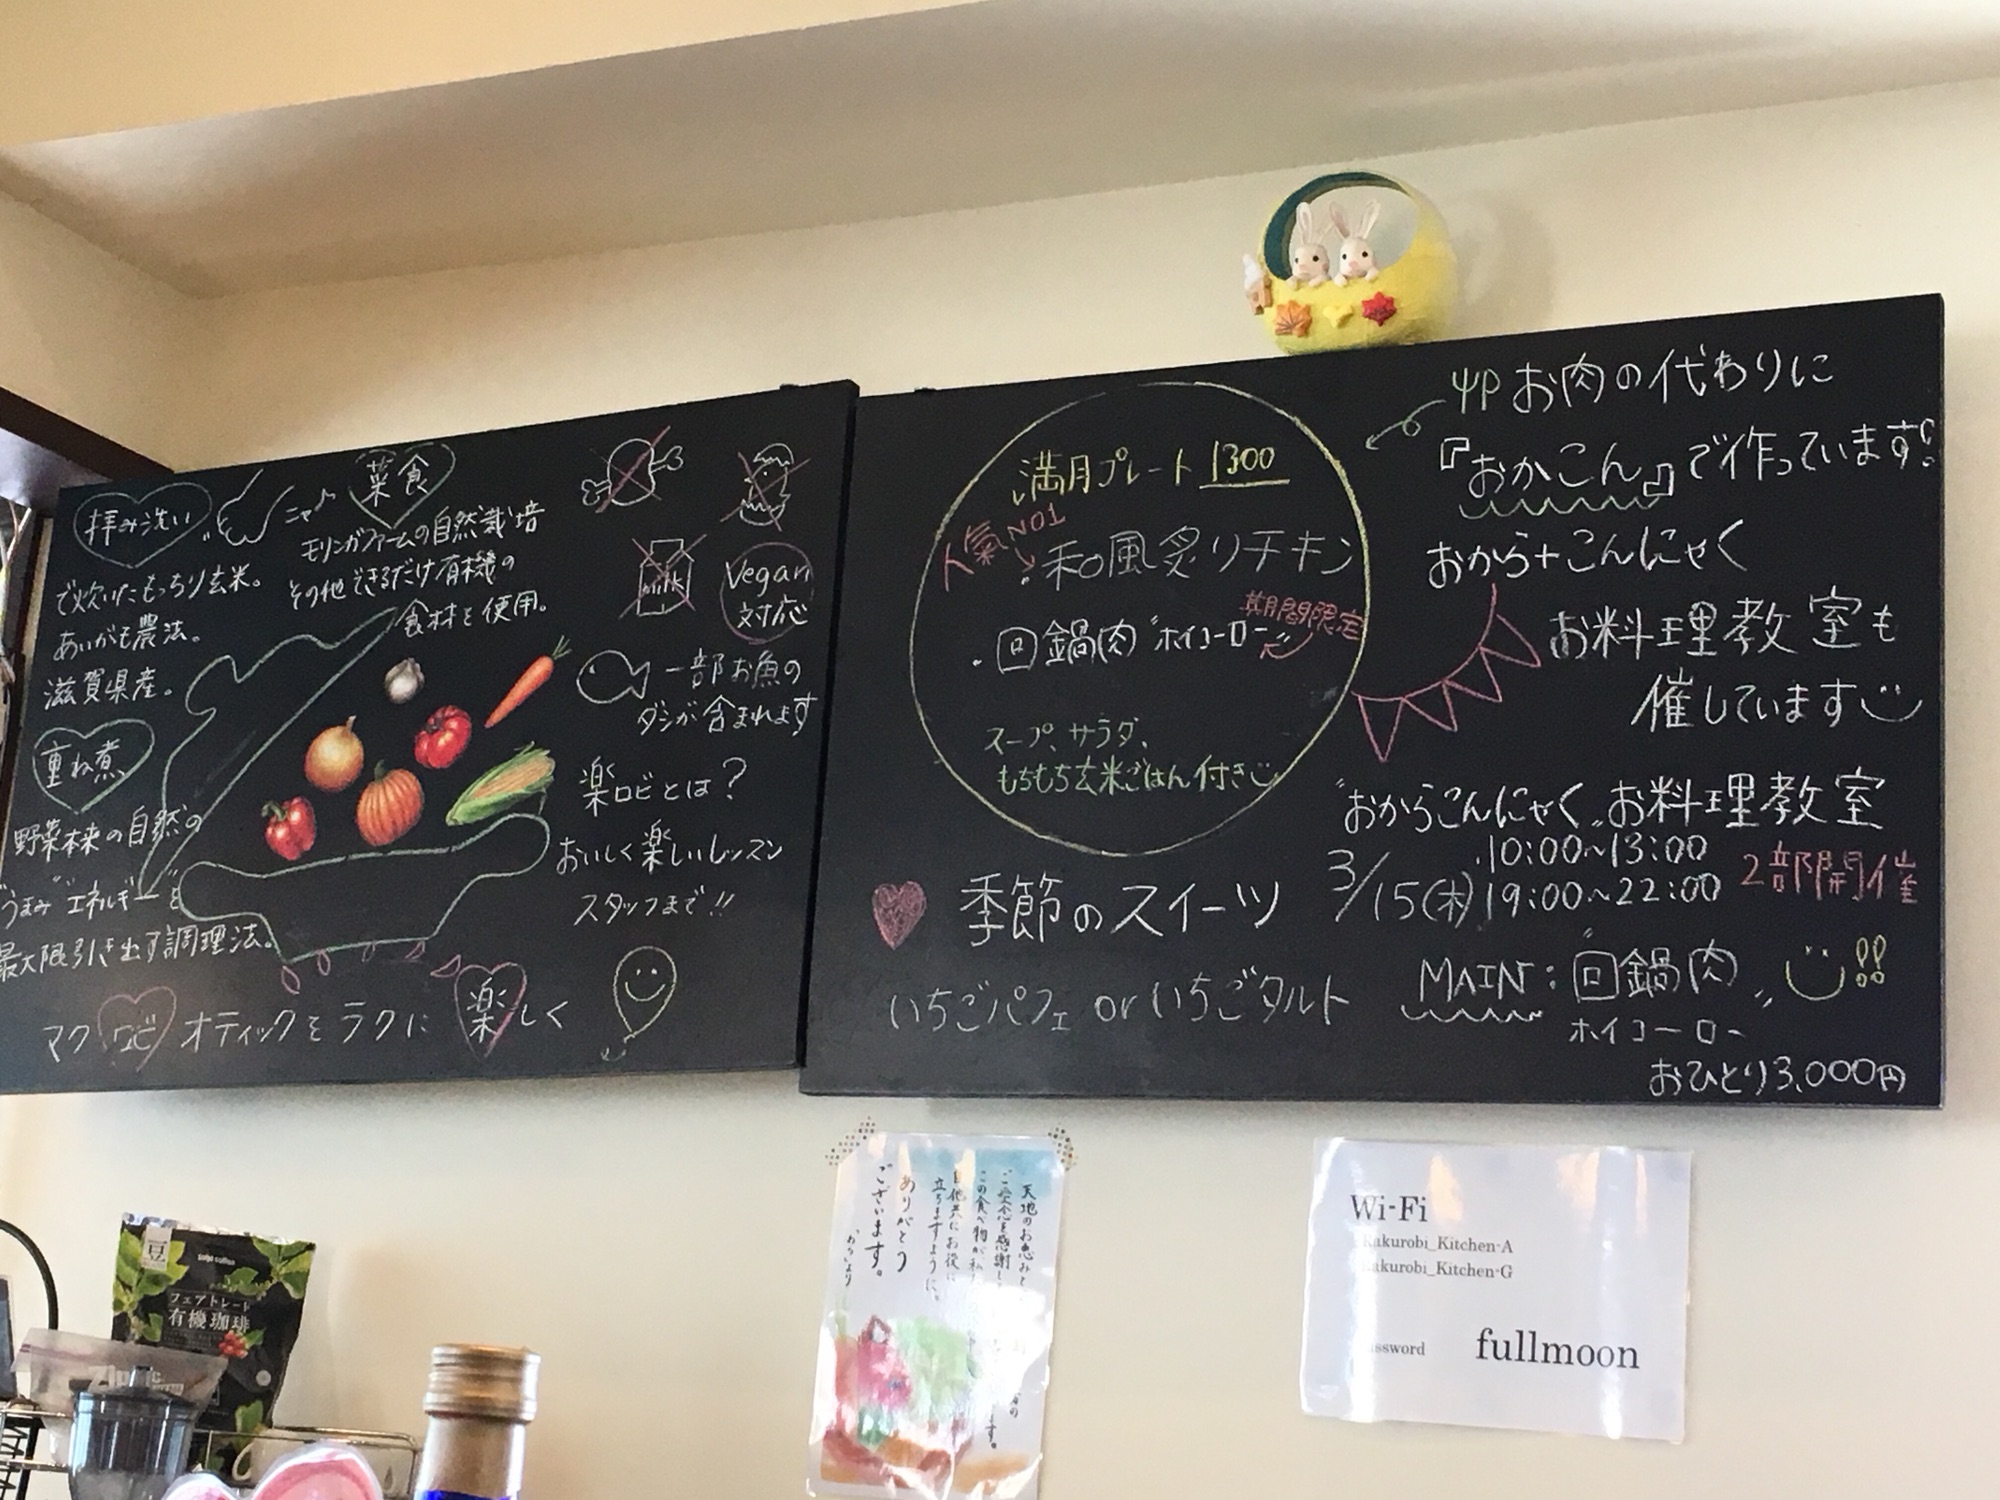 拝み洗い
で炊いたもっちり玄米。
あいがも農法。
滋賀県産。
重ね煮
野菜本来の自然の
"うまみ" "エネルギー"を
最大限引き出す調理法。
菜食
モリンガファームの自然栽培
その他できるだけ有機の
食材を使用。
milk
Vegan
対応
一部お魚の
ダシが含まれます
楽ロビとは?
おいしく楽しいレッスン
スタッフまで!!
マクロビオティックをラクに楽しく
満月プレート 1300
人氣NO1
・和風炙りチキン
期間限定
・回鍋肉"ホイコーロー"
スープ、サラダ、
もちもち玄米ごはん付き
お肉の代わりに
『おかこん』で作っています!
おから+こんにゃく
お料理教室も
催しています
"おからこんにゃく"お料理教室
3/15(木)
10:00~13:00
19:00~22:00
2部開催
MAIN:"回鍋肉"!!
ホイコーロー
おひとり3,000円
季節のスイーツ
いちごパフェ or いちごタルト
天地のお恵みと
この食べ物が
自他共にお役に
立ちますように。
ありがとう
ございます。
Wi-Fi
Kitchen-A
Kitchen-G
fullmoon
豆
フェアトレード
有機珈琲